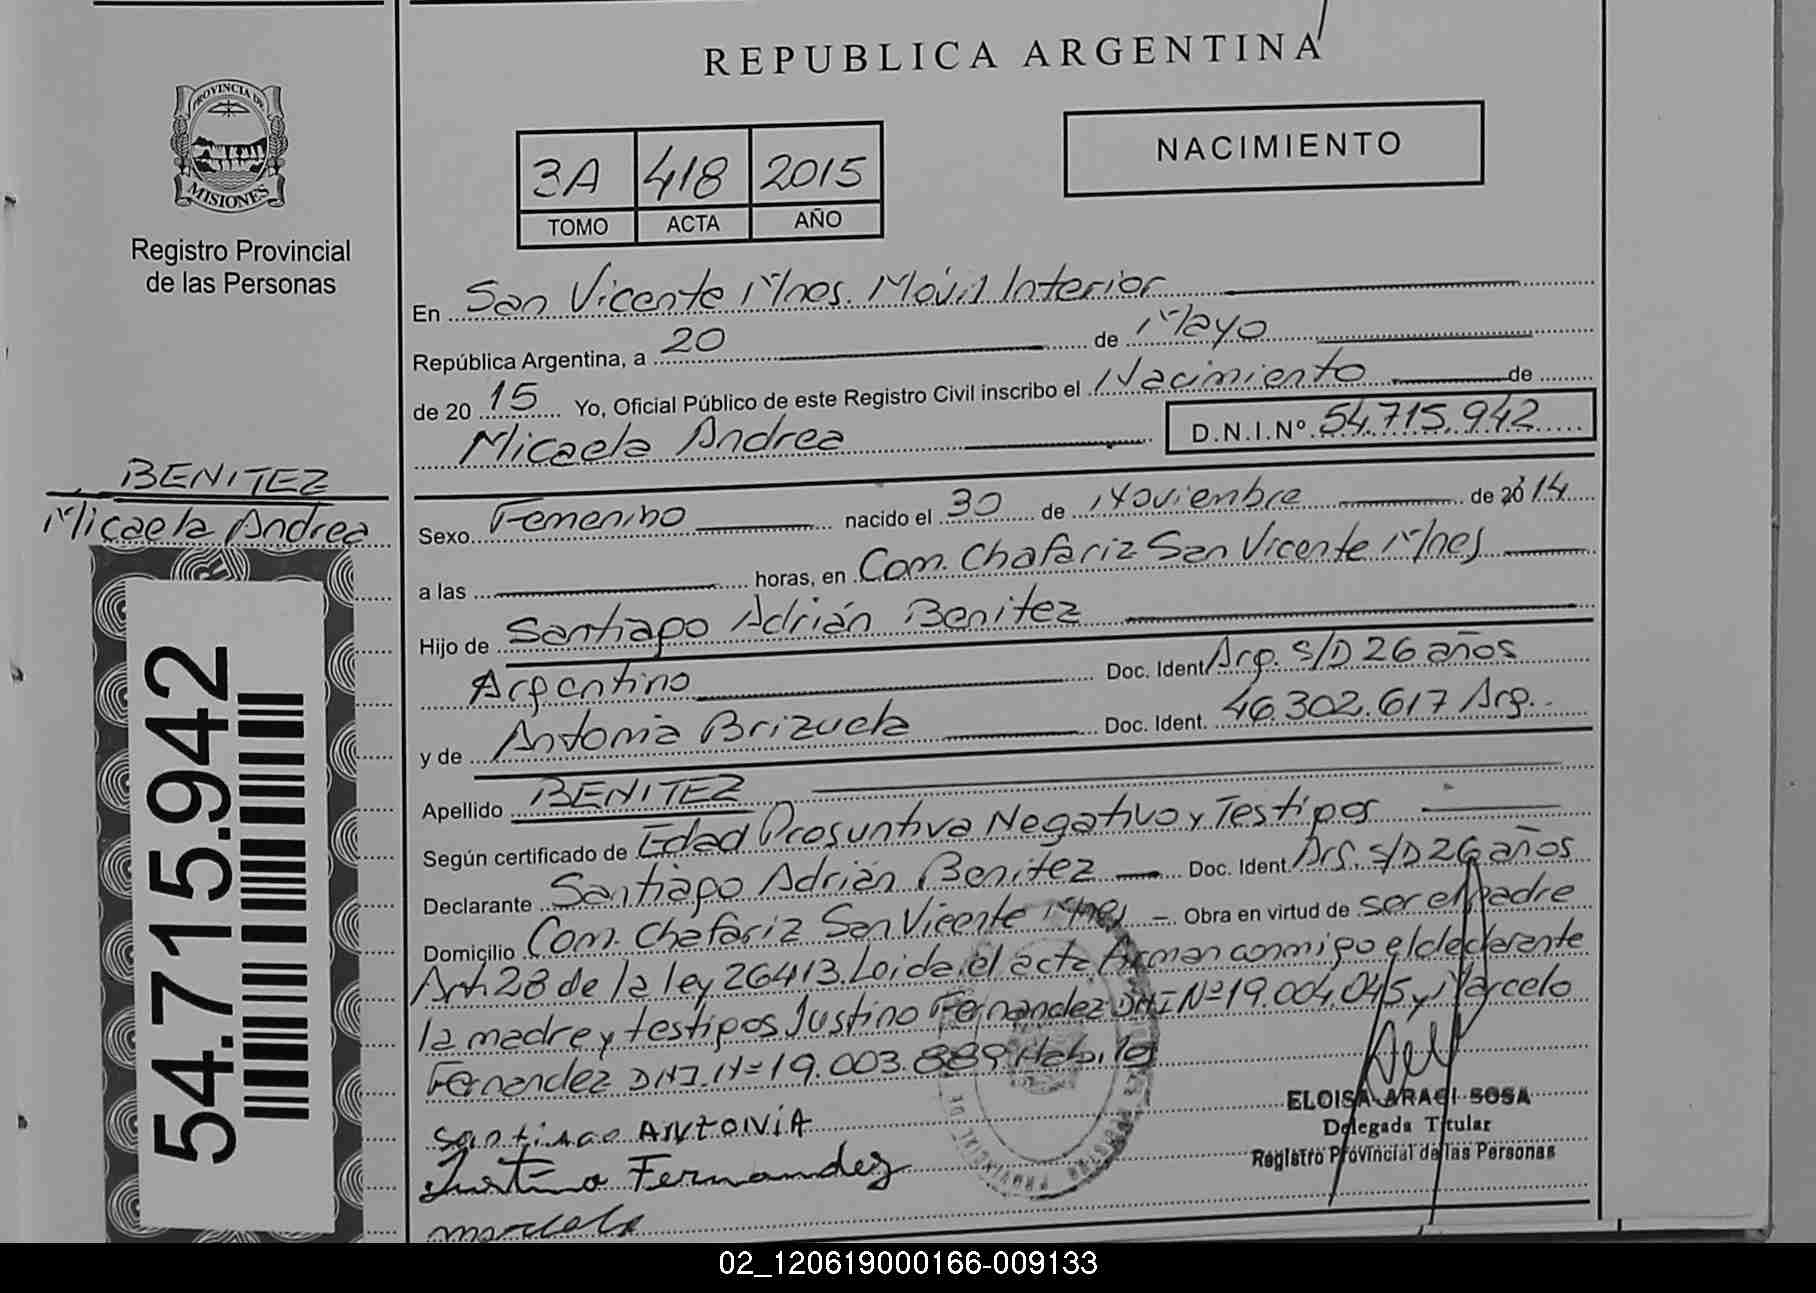 REPUBLICA ARGENTINA
PROVINCIA DE
MISIONES
Registro Provincial
de las Personas
NACIMIENTO
3A 418 2015
TOMO ACTA AÑO
En San Vicente Mnes. Móvil Interior
República Argentina, a 20 de Mayo
de 2015 Yo, Oficial Público de este Registro Civil inscribo el Nacimiento de
Micaela Andrea D.N.I.Nº 54.715.942
BENITEZ
Micaela Andrea
54.715.942
Sexo Femenino nacido el 30 de Noviembre de 2014
a las horas, en Com. Chafariz San Vicente Mnes
Hijo de Santiago Adrián Benitez
Argentino Doc. Ident Arg. S/D 26 años
y de Antonia Brizuela Doc. Ident. 46.302.617 Arg.
Apellido BENITEZ
Según certificado de Edad Presuntiva Negativo y Testigos
Declarante Santiago Adrián Benitez Doc. Ident. Arg. S/D 26 años
Domicilio Com. Chafariz San Vicente Mnes Obra en virtud de ser el padre
Art. 28 de la ley 26413. Loida el acta firman conmigo el declarante
la madre y testigos Justino Fernandez DNI Nº 19.004.045 y Marcelo
Fernandez DNI. Nº 19.003.889 Habiles
Santiago ANTONIA
Justino Fernandez
ELOISA ARACI SOSA
Delegada Titular
Registro Provincial de las Personas
02_120619000166-009133